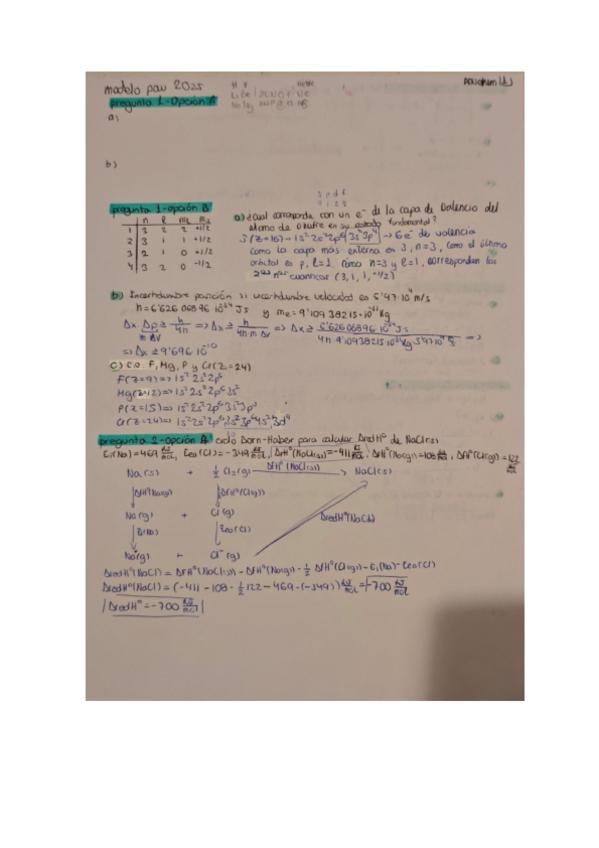 modelo pau 2025
pregunta 1-Opción A
a)
b)
pregunta 1-opción B
n l ml ms
1 3 2 2 +1/2
2 3 1 1 +1/2
3 2 1 0 +1/2
4 3 2 0 -1/2
a) ¿Cuál corresponde con un e⁻ de la capa de valencia del
átomo de azufre en su estado fundamental?
S (Z=16) → 1s² 2s² 2p⁶ 3s² 3p⁴ → 6 e⁻ de valencia
como la capa más externa es 3, n=3, como el último
orbital es p, l=1. Como n=3 y l=1, corresponden los
nºs cuánticos (3, 1, 1, +1/2)
b) Incertidumbre posición si incertidumbre velocidad es 5'47·10⁴ m/s
h = 6'62606896·10⁻³⁴ Js y me = 9'10938215·10⁻³¹ Kg
Δx · Δp ≥ h/4π => Δx ≥ h/4π m Δv => Δx ≥
m Δv
=> Δx ≥ 9'696·10⁻¹⁰
c) C.e. F, Mg, P y Cr (Z=24)
F (Z=9) => 1s² 2s² 2p⁵
Mg (Z=12) => 1s² 2s² 2p⁶ 3s²
P (Z=15) => 1s² 2s² 2p⁶ 3s² 3p³
Cr (Z=24) => 1s² 2s² 2p⁶ 3s² 3p⁶ 4s² 3d⁴
pregunta 2-opción A ciclo Born-Haber para calcular ΔredHº de NaCl(s)
Ei(Na) = 469 KJ/mol, Eea(Cl) = -349 KJ/mol, ΔfHº(NaCl(s)) = -411 KJ/mol, ΔfHº(Na(g)) = 108 KJ/mol, ΔfHº(Cl(g)) = 122 KJ/mol
Na(s) + ½ Cl₂(g) ΔfHº(NaCl(s)) NaCl(s)
ΔfHº(Na(g)) ΔfHº(Cl(g))
Na(g) + Cl(g)
ΔredHº(NaCl)
Ei(Na) Eea(Cl)
Na⁺(g) + Cl⁻(g)
ΔredHº(NaCl) = ΔfHº(NaCl(s)) - ΔfHº(Na(g)) - ½ ΔfHº(Cl(g)) - Ei(Na) - Eea(Cl)
ΔredHº(NaCl) = (-411 - 108 - ½ 122 - 469 - (-349)) KJ/mol = -700 KJ/mol
ΔredHº = -700 KJ/mol